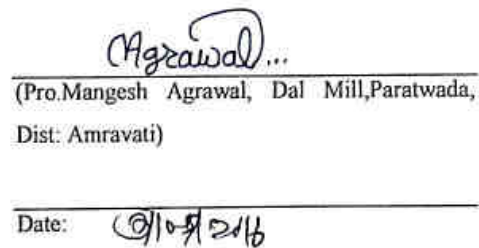 Magrawal...
(Pro.Mangesh Agrawal, Dal Mill,Paratwada,
Dist: Amravati)
Date: